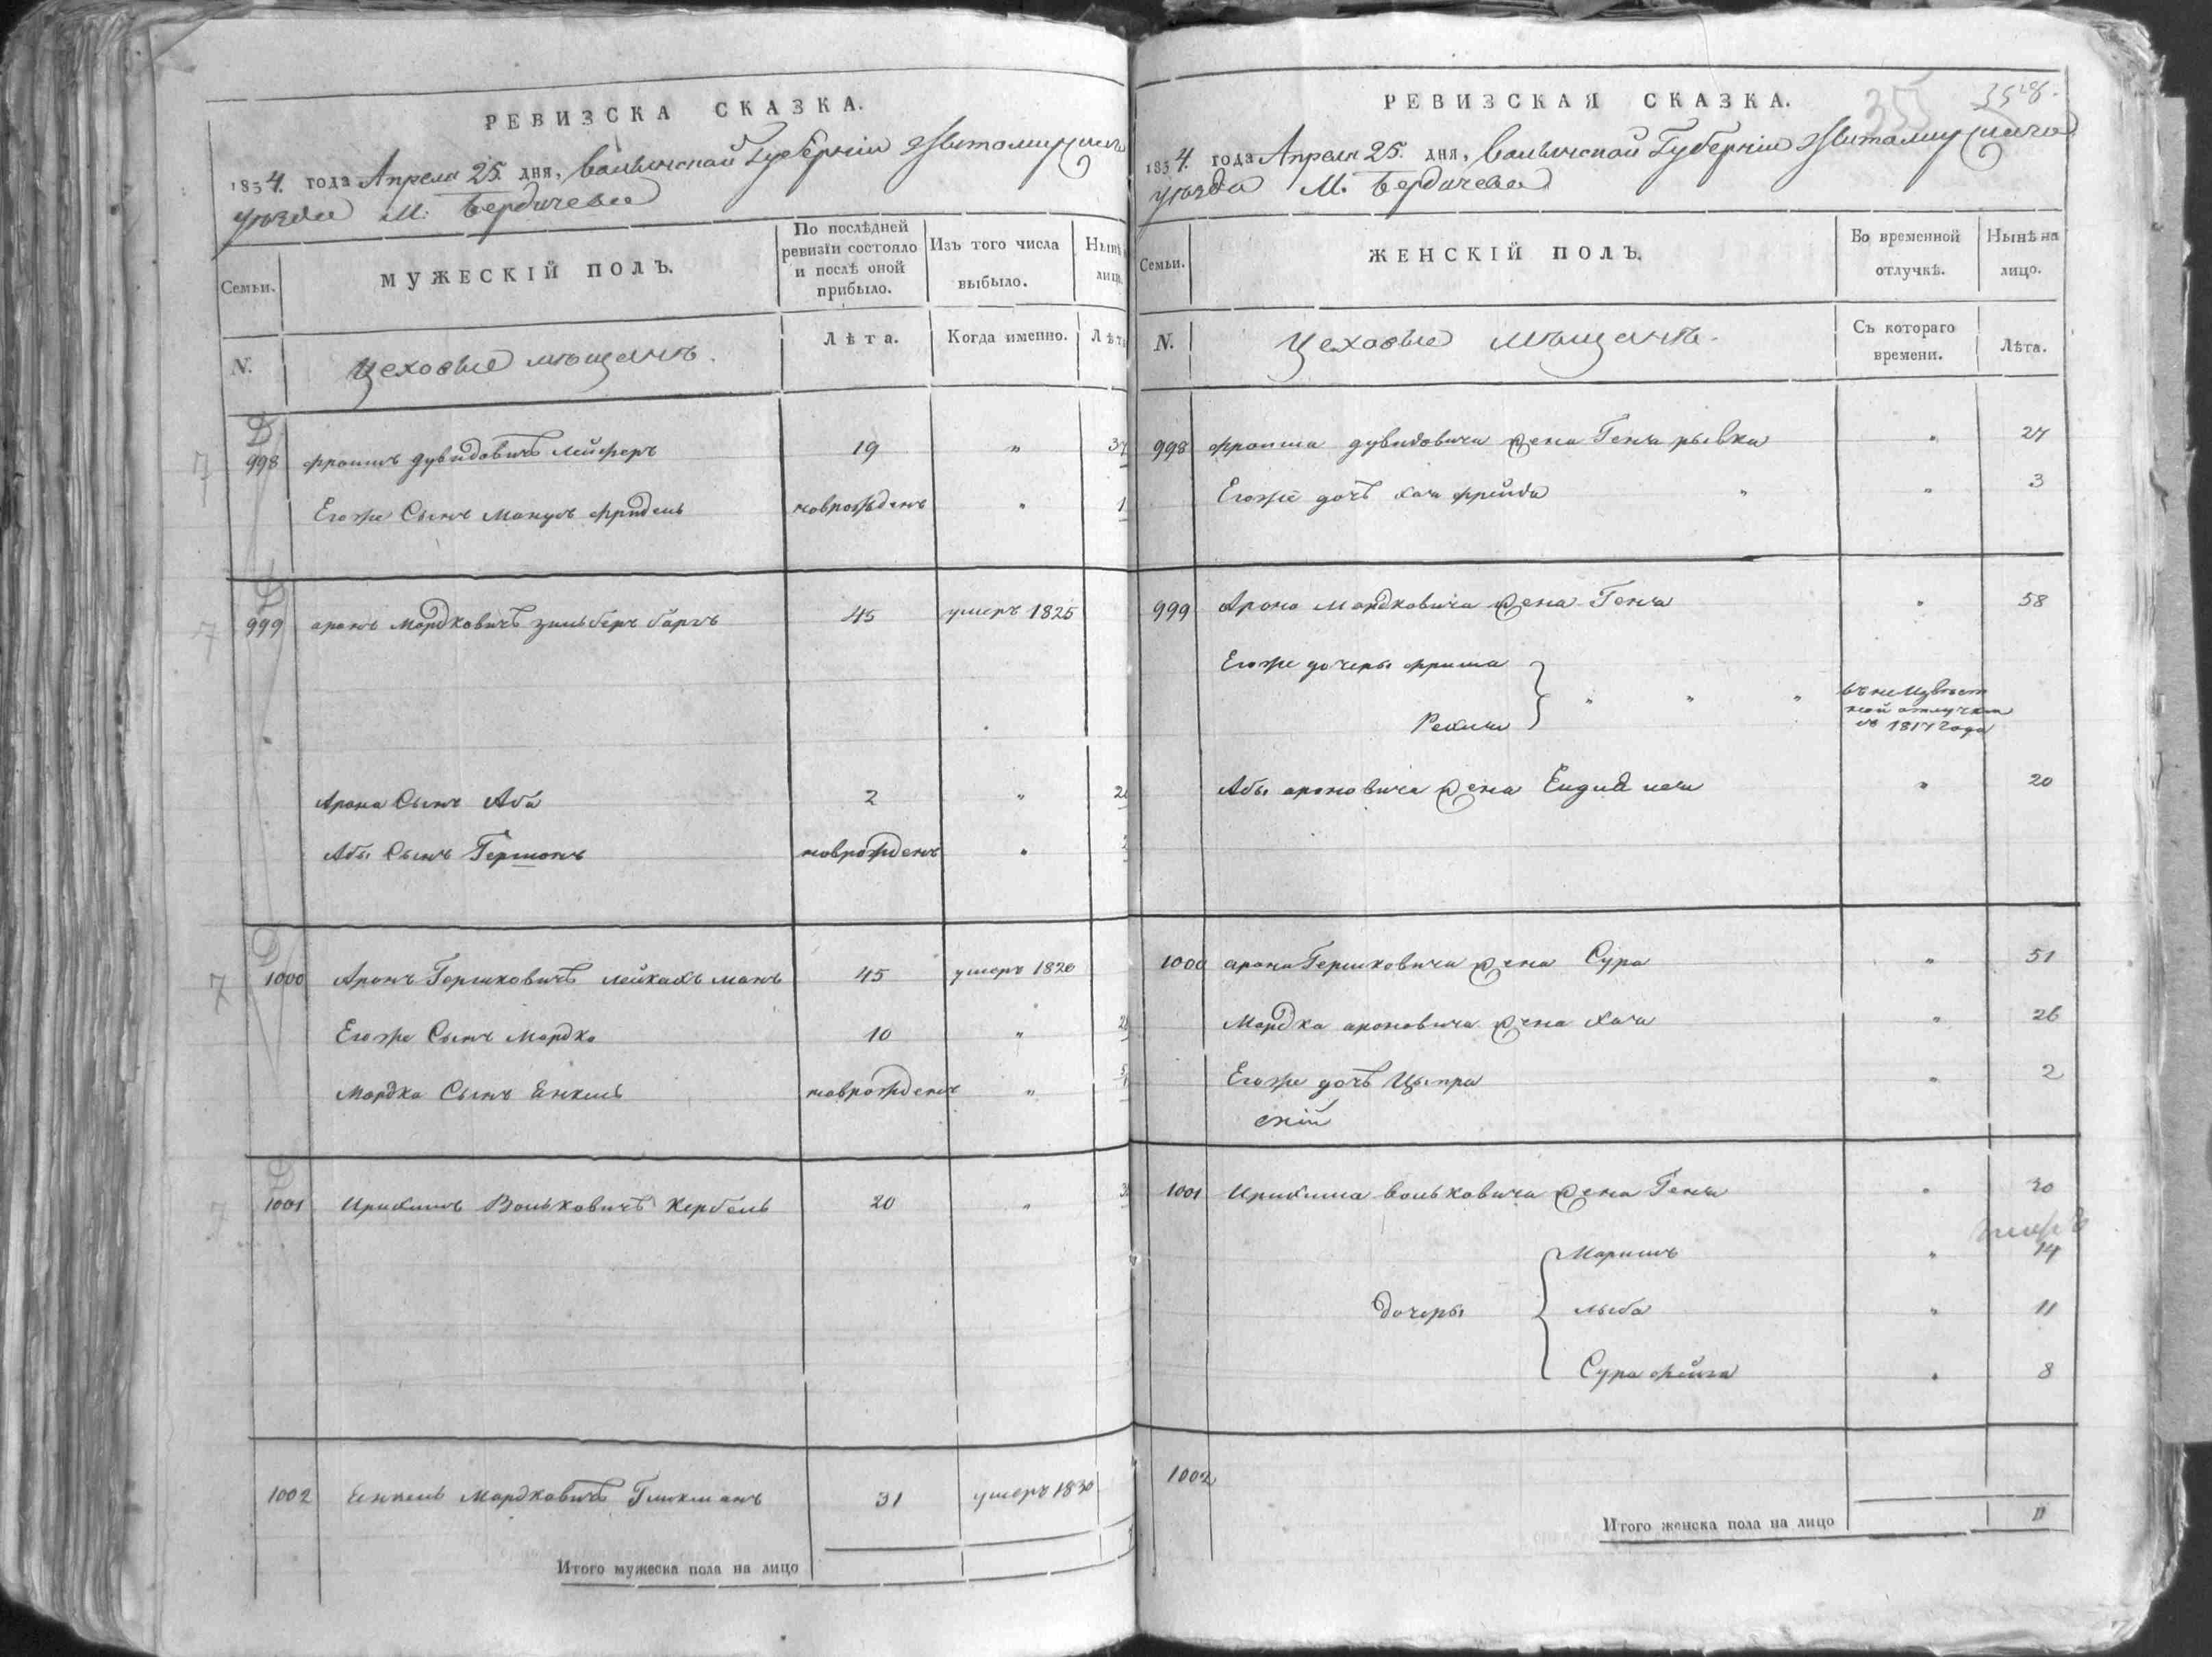 РЕВИЗСКА СКАЗКА.
1834. года Апреля 25. дня, Волынской Губернии Житомирскаго
уѣзда М. Бердичева
Семьи.
МУЖЕСКІЙ ПОЛЪ.
По послѣдней
ревизіи состояло
и послѣ оной
прибыло.
Изъ того числа
выбыло.
N.
Цеховые мѣщанъ.
Лѣта.
Когда именно.
998 Фроимъ Дувидовичъ Лейферъ 19 "
Егоже Сынъ Манусъ Фридель новрожденъ " 1
999 Аронъ Мордковичъ Зильберъ баргъ 45 умеръ 1825
Арона Сынъ Аба 2 "
Абы Сынъ Гершонъ новрожденъ "
7 1000 Аронъ Гершковичъ Лейкахъ манъ 45 умеръ 1820
Егоже Сынъ Мордко 10 "
Мордка Сынъ Енкель новрожденъ "
1001 Волковичъ Кербель 20 "
1002 Енкель Мордковичъ Гликманъ 31 умеръ 1830
Итого мужеска пола на лицо
РЕВИЗСКАЯ СКАЗКА.
355
1834. года Апреля 25. дня, Волынской Губернии Житомирскаго
уѣзда М. Бердичева
Семьи.
ЖЕНСКІЙ ПОЛЪ.
Во временной
отлучкѣ.
Нынѣ на
лицо.
N.
Цеховые мѣщанъ.
Съ котораго
времени.
Лѣта.
998 Фроима Дувидовича жена Геня рывка " 27
Егоже дочь Хая Фрейда " " 3
999 Арона Мордковича жена Геня " 58
Егоже дочеры Фрима
въ неизвѣст
ной отлучки
съ 1817 года
Абы Ароновича жена " 20
1000 Арона Гершковича жена Сура " 51
Мордка Ароновича жена Хая " 26
Егоже дочь Ципра " 2
1001 Волковича жена Геня " 30
" 14
дочеры " 11
Сура Фейга " 8
1002
Итого женска пола на лицо 11